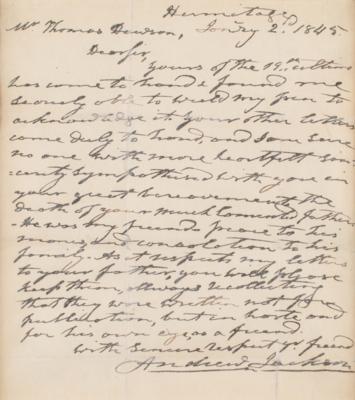 Hermitage,
Mr Thomas Dawson, Janry 2d. 1845
Dear sir,
yours of the 19th ultimo
has come to hand & found me
scarcely able to wield my pen to
acknowledge it your other letters
come duly to hand, and I am sure
no one with more heartfelt sin-
cerity sympathised with you in
your great bereavement the
death of your much lamented father
He was my friend peace to his
manes, and consolation to his
family. As it respects my letters
to your father, you will please
keep them, allways recollecting
that they were written not for
publication, but in haste and
for his own eye, as a friend.
with sincere respect yr friend
Andrew Jackson